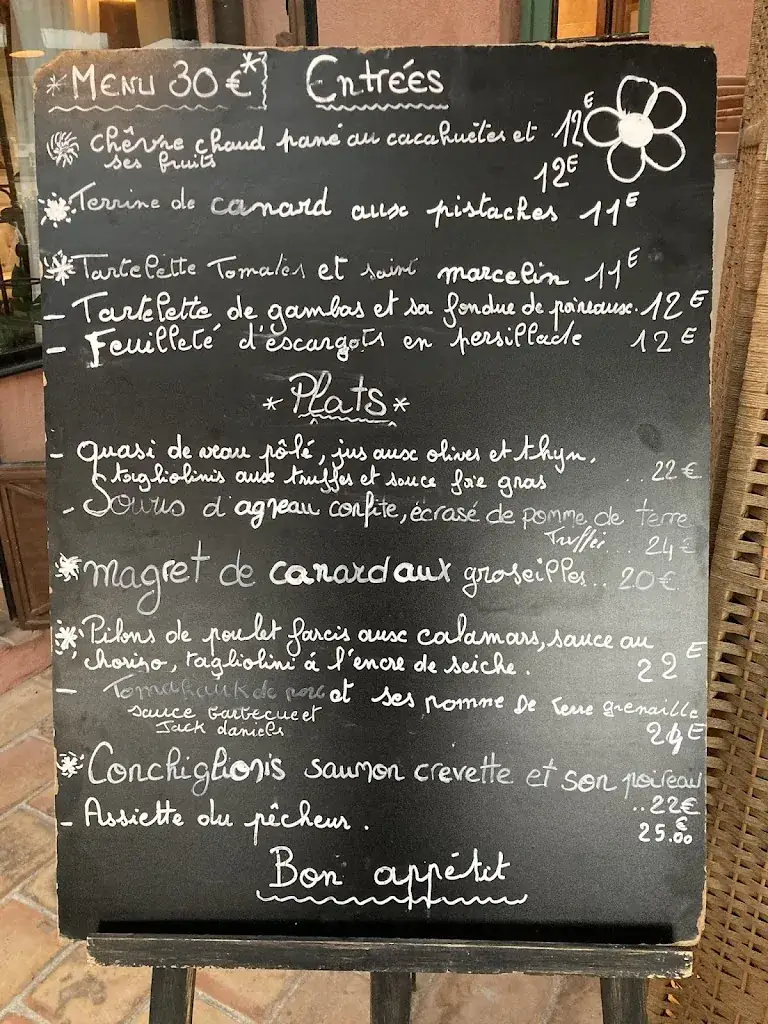 *MENU 30€*
Entrées
chèvre chaud pané au cacahuètes et 12€
ses fruits
12€
Terrine de canard aux pistaches 11€
Tartelette Tomates et saint marcelin 11€
- Tartelette de gambas et sa fondue de poireaux. 12€
- Feuilleté d'escargots en persillade 12€
*Plats*
- quasi de veau pôlé, jus aux olives et thyn,
tagliolinis aux truffes et sauce foie gras ..22€
- Souris d'agneau confite, écrasé de pomme de terre
Truffée... 24€
*magret de canard aux groseilles.. 20€
*Pilons de poulet farcis aux calamars, sauce au
chorizo, tagliolini á l'encre de seiche. 22€
- Tomahauk de porc et ses pomme De Terre grenaille
sauce barbecue et
Jack daniels
24€
*Conchiglionis saumon crevette et son poireau
..22€
- Assiette du pêcheur.
25.€00
Bon appétit